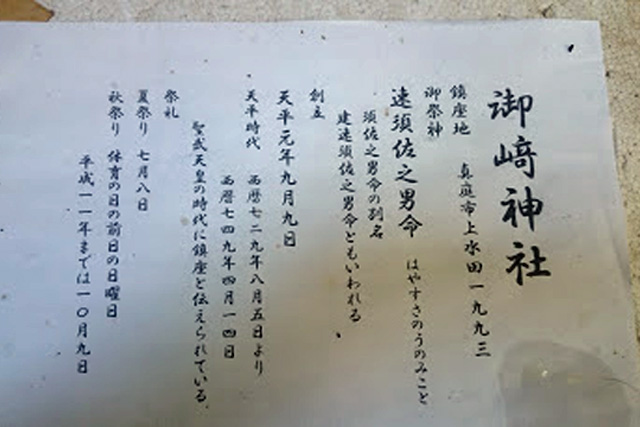 御﨑神社
鎮座地 真庭市上水田一九九三
御祭神
速須佐之男命 はやすさのうのみこと
須佐之男命の別名
建速須佐之男命ともいわれる
創立
天平元年九月九日
天平時代 西暦七二九年八月五日より
西暦七四九年四月一四日
聖武天皇の時代に鎮座と伝えられている。
祭礼
夏祭り 七月八日
秋祭り 体育の日の前日の日曜日
平成一一年までは一〇月九日